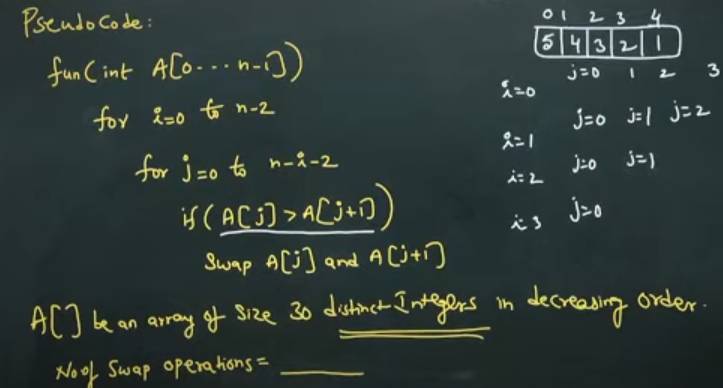 PseudoCode:
fun(int A[0---n-1])
for i=0 to n-2
for j=0 to n-i-2
if(A[j]>A[j+1])
Swap A[j] and A[j+1]
A[] be an array of Size 30 distinct Integers in decreasing order.
No of Swap operations = ____
0 1 2 3 4
5 4 3 2 1
j=0 1 2 3
i=0
j=0 j=1 j=2
i=1
j=0 j=1
i=2
j=0
i 3